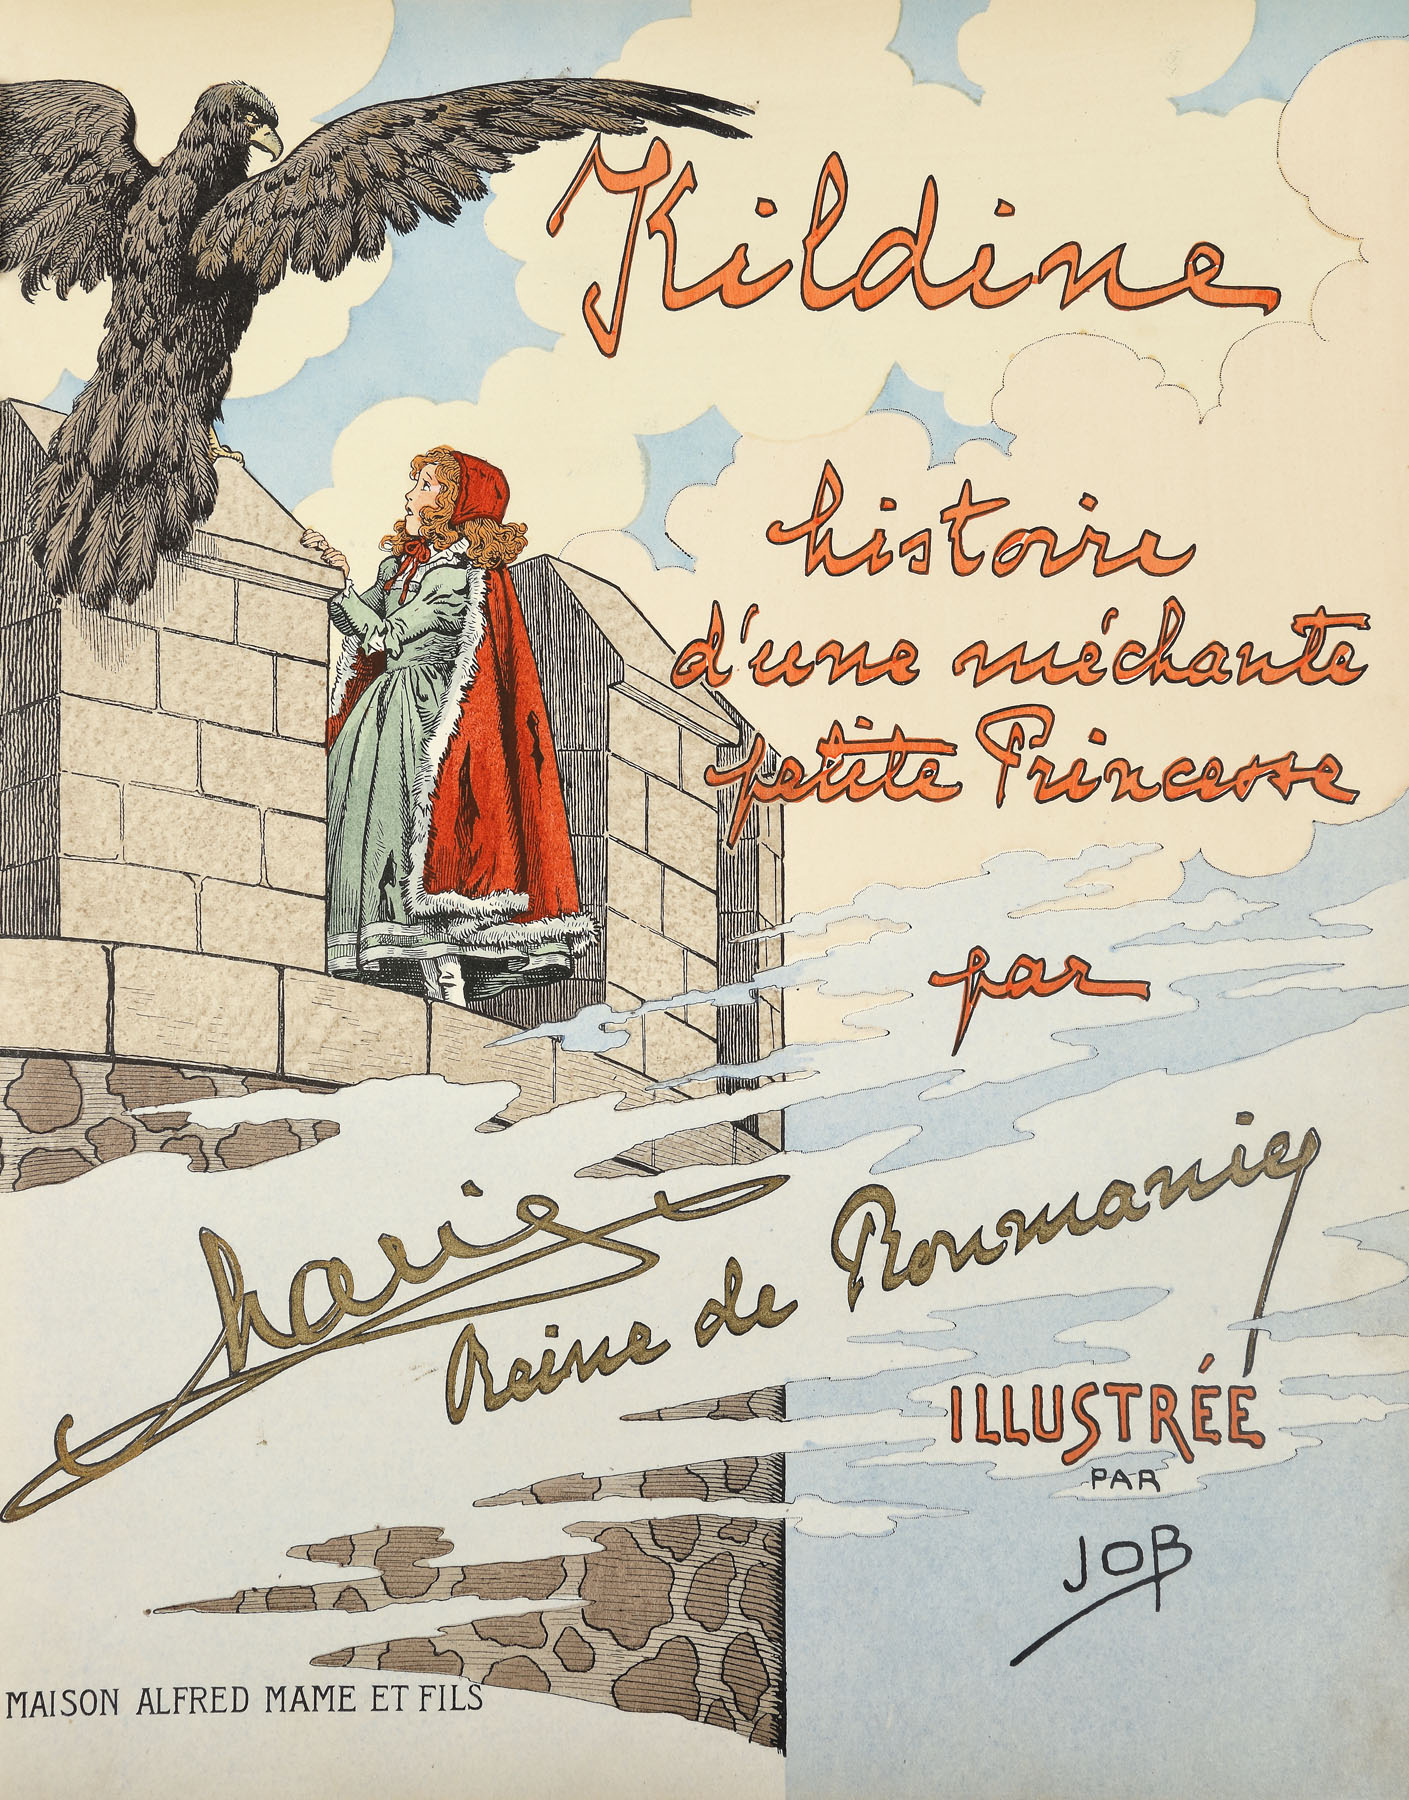 Kildine
histoire
d'une méchante
petite Princesse
par
Marie
Reine de Roumanie
ILLUSTRÉE
PAR
JOB
MAISON ALFRED MAME ET FILS